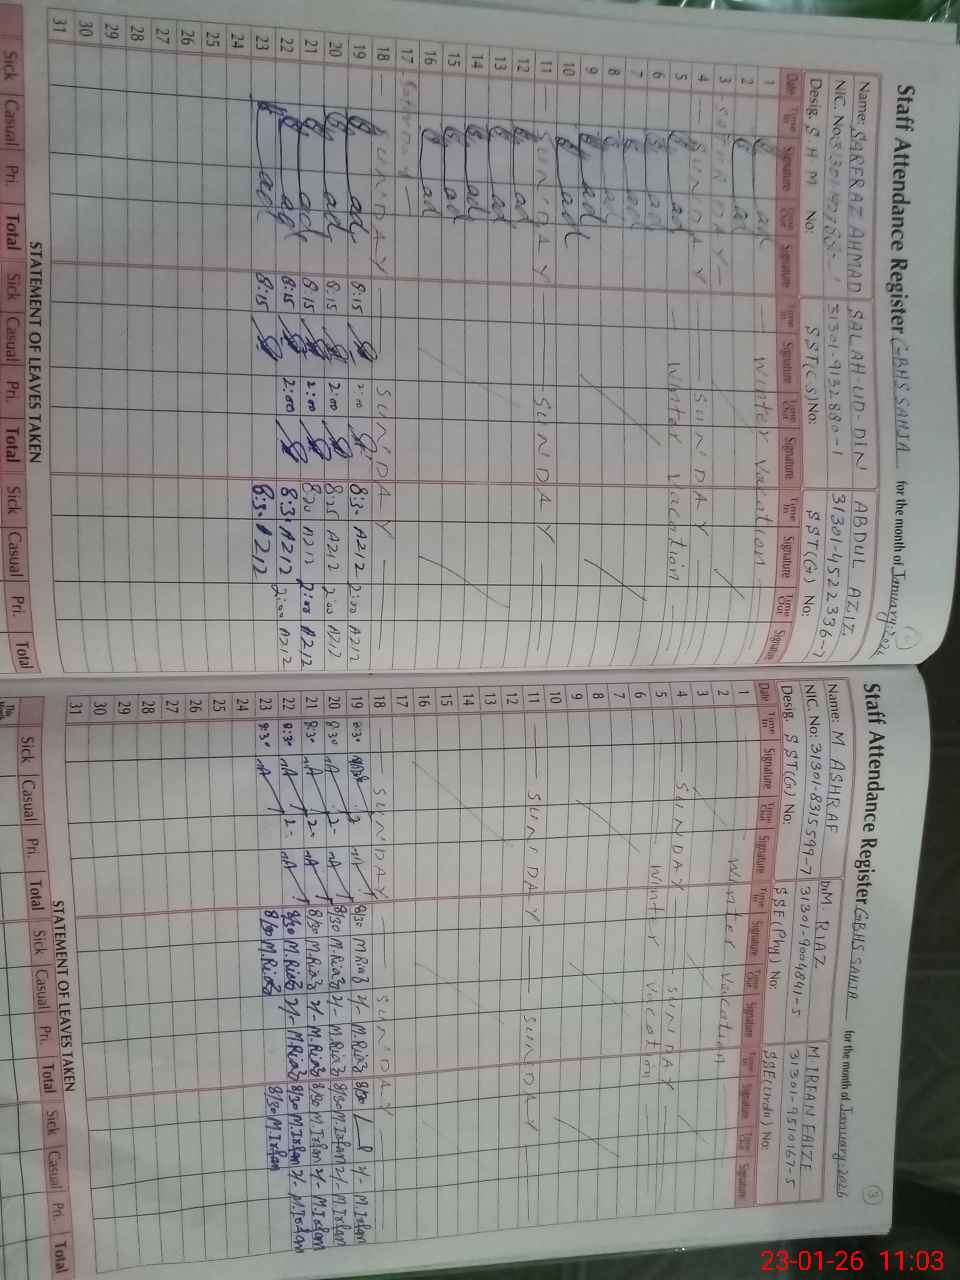 Staff Attendance Register GBHS SAHJA for the month of January, 2026
Name: SARFRAZ AHMAD SALAH-UD-DIN ABDUL AZIZ
NIC. No: 31301-9132880-1 31301-4522336-7
Desig. S H M No: SST(CS) No: SST(G) No:
Date Time In Signature Time Out Signature Time In Signature Time Out Signature Time In Signature Time Out Signature
1 Winter Vacation
2
3
4 SUNDAY SUNDAY
5 Winter Vacation
6
7
8
9
10
11 SUNDAY SUNDAY
12
13
14
15
16
17
18 SUNDAY SUNDAY
19 8:15 2:00 8:30 A212 2:00 A212
20 8:15 2:00 8:25 A212 2:00 A212
21 8:15 2:00 8:20 A212 2:00 A212
22 8:15 2:00 8:30 A212 2:00 A212
23 8:15 8:30 A212
24
25
26
27
28
29
30
31
STATEMENT OF LEAVES TAKEN
Sick Casual Pri. Total Sick Casual Pri. Total Sick Casual Pri. Total
Staff Attendance Register GBHS SAHJA for the month of January, 2026
3
Name: M ASHRAF M. RIAZ M IRFAN FAIZE
NIC. No: 31301-8315599-7 31301-9004841-5 31301-9510167-5
Desig. SST(G) No: SSE(Phy) No: SSE(Urdu) No:
Date Time In Signature Time Out Signature Time In Signature Time Out Signature Time In Signature Time Out Signature
1 Winter Vacation
2
3
4 SUNDAY SUNDAY
5 Winter Vacation
6
7
8
9
10
11 SUNDAY SUNDAY
12
13
14
15
16
17
18 SUNDAY SUNDAY
19 8:30 2 8/30 M.Riaz 2/- M.Riaz 8/30 2/- M.Irfan
20 8:30 2- 8/30 M.Riaz 2/- M.Riaz 8/30 M.Irfan 2/- M.Irfan
21 8:30 2- 8/30 M.Riaz 2/- M.Riaz 8/30 M.Irfan 2/- M.Irfan
22 8:30 2- 8/30 M.Riaz 2/- M.Riaz 8/30 M.Irfan 2/- M.Irfan
23 8:30 8/30 M.Riaz 8/30 M.Irfan
24
25
26
27
28
29
30
31
STATEMENT OF LEAVES TAKEN
Sick Casual Pri. Total Sick Casual Pri. Total Sick Casual Pri. Total
23-01-26 11:03